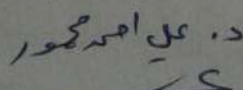 د. علي احمد محمود